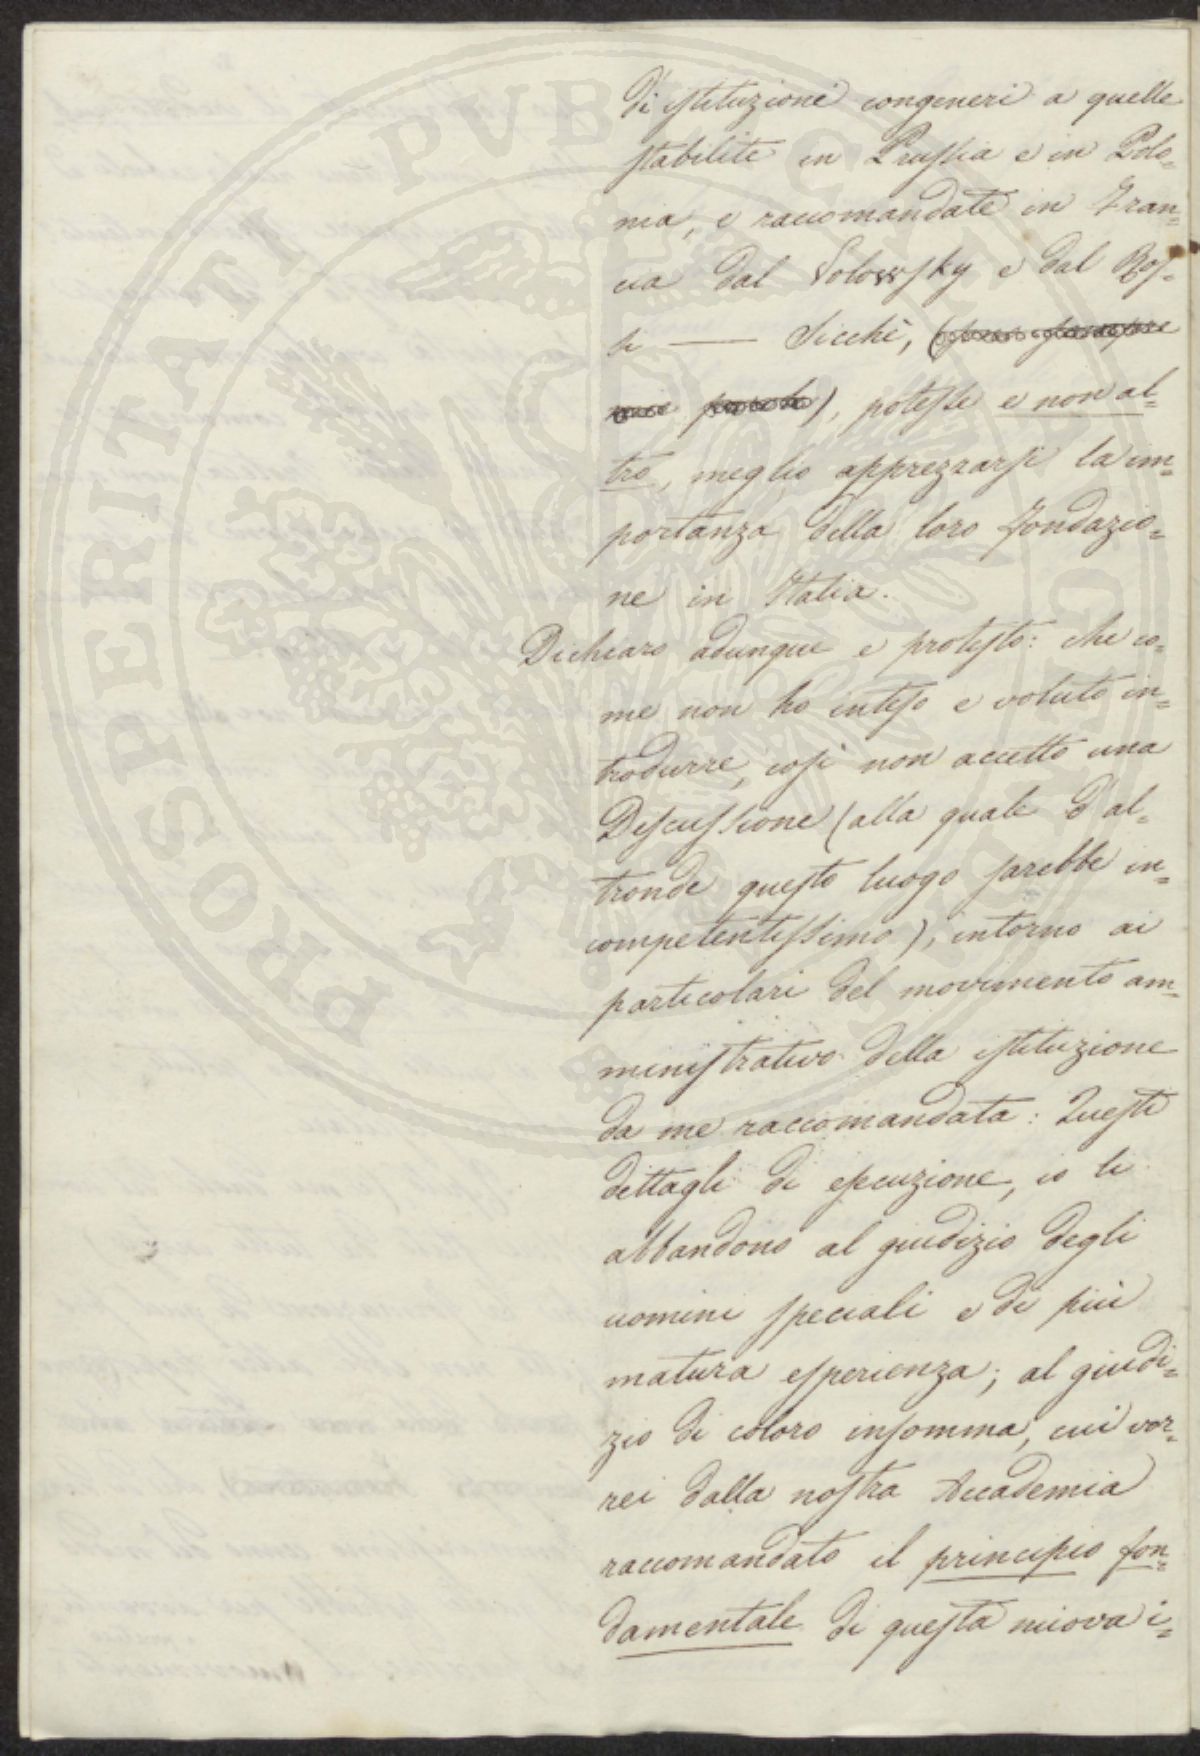 di istituzioni congeneri a quelle
stabilite in Prussia e in Polo=
nia, e raccomandate in Fran=
cia dal Volowsky e dal Ros=
si — Sicchè, (
), potesse e non al=
tro, meglio apprezzarsi la im=
portanza della loro fondazio=
ne in Italia.
Dichiaro adunque e protesto: che co=
me non ho inteso e voluto in=
trodurre, così non accetto una
Discussione (alla quale d'al=
tronde questo luogo sarebbe in=
competentissimo), intorno ai
particolari del movimento am=
ministrativo della istituzione
da me raccomandata: Questi
dettagli di esecuzione, io li
abbandono al giudizio degli
uomini speciali e di più
matura esperienza; al giudi=
zio di coloro insomma, cui vor=
rei dalla nostra Accademia
raccomandato il principio fon=
damentale di questa nuova i=
PROSPERITATI PUBLICAE